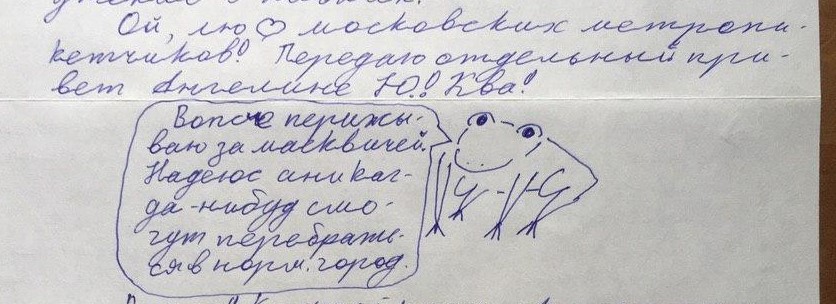 Ой, лю♡ московских метропи-
кетчиков! Передаю отдельный при-
вет Ангелине Ю.! Ква!
Вопсче перижы-
ваю за масквичей.
Надеюс аникаг-
да-нибуд смо-
гут перебрать-
ся в норм. город.